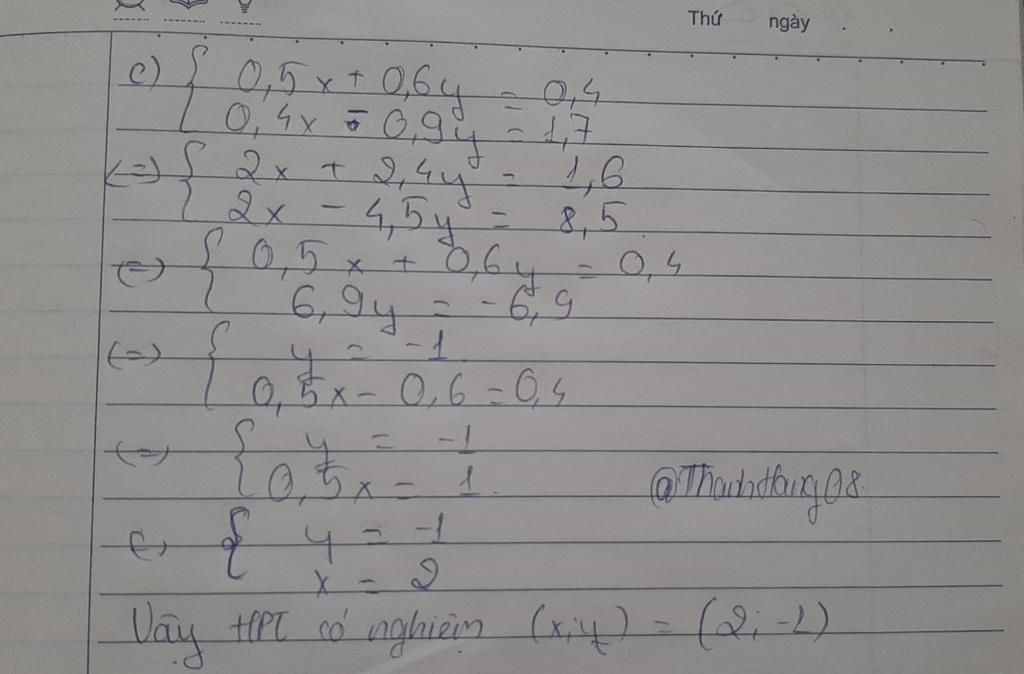 Thứ ngày . .
c) { 0,5x + 0,6y = 0,4
0,4x - 0,9y = 1,7
(=) { 2x + 2,4y = 1,6
2x - 4,5y = 8,5
(=) { 0,5x + 0,6y = 0,4
6,9y = -6,9
(=) { y = -1
0,5x - 0,6 = 0,4
(=) { y = -1
0,5x = 1.
@ThanhHang08.
(=) { y = -1
x = 2
Vậy HPT có nghiệm (x;y) = (2;-1)